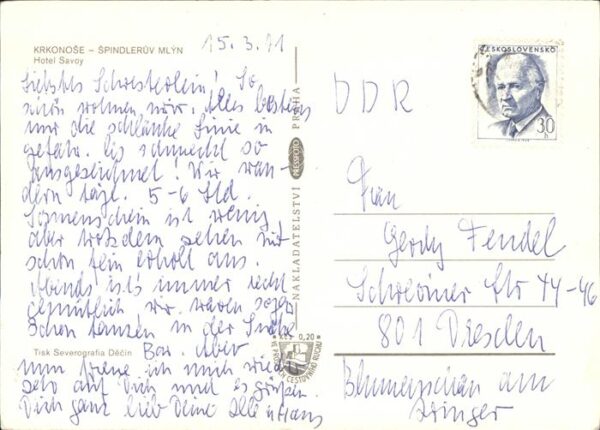 KRKONOŠE – ŠPINDLERŮV MLÝN
Hotel Savoy
15.3.71
Liebstes Schwesterlein! So
schön wohnen wir. Alles bestens
nur die schlanke Linie in
Gefahr. Es schmeckt so
ausgezeichnet! Wir wan-
dern tägl. 5-6 Std.
Sonnenschein ist wenig
aber trotzdem sehen wir
schon fein erholt aus.
Abends ist's immer recht
gemütlich wir waren sogar
schon tanzen in der
Bar. Aber
nun freue ich mich wied
sehr auf Dich und es grüßen
Dich ganz lieb Deine
Tisk Severografia Děčín
NAKLADATELSTVÍ PRESSFOTO PRAHA
Kčs 0,20
ČESKOSLOVENSKO
30
h
DDR
Frau
Gerdy Fendel
Str 44-46
801 Dresden
Blumenschau am